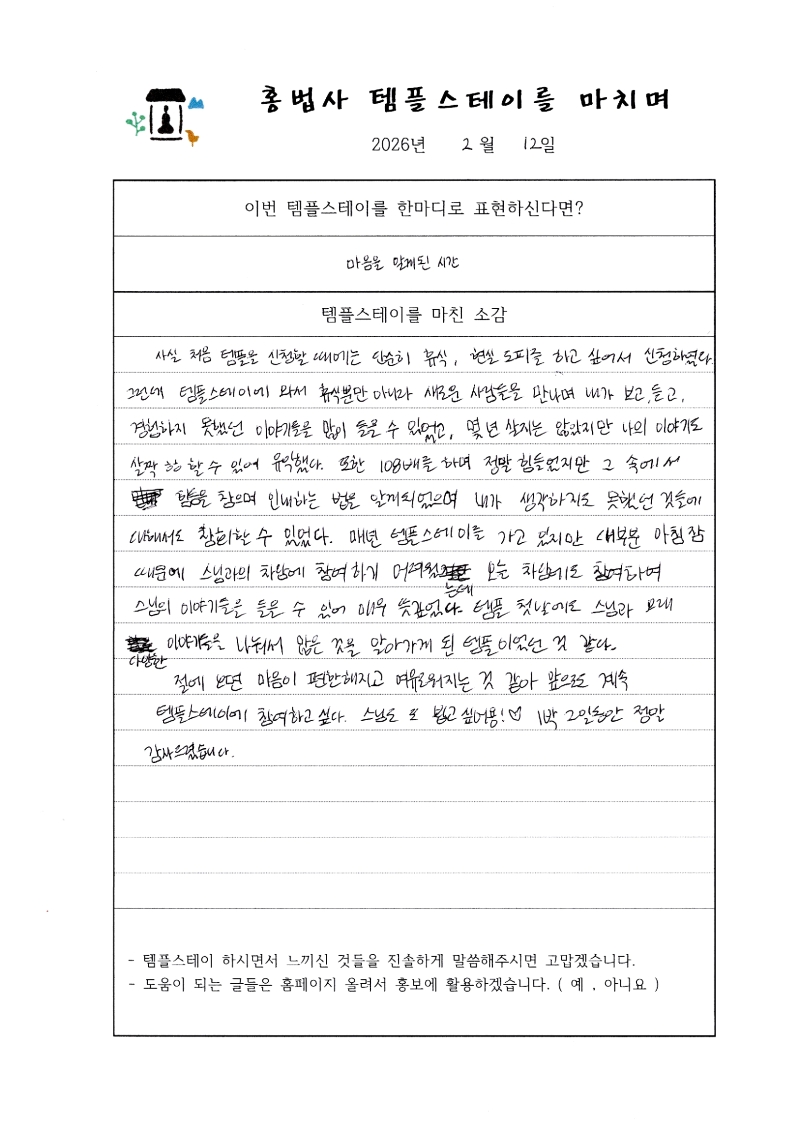 홍법사 템플스테이를 마치며
2026년 2월 12일
이번 템플스테이를 한마디로 표현하신다면?
마음을 알게된 시간
템플스테이를 마친 소감
사실 처음 템플을 신청할 때에는 단순히 휴식, 현실 도피를 하고 싶어서 신청하였다.
그런데 템플스테이에 와서 휴식뿐만 아니라 새로운 사람들을 만나며 내가 보고, 듣고,
경험하지 못했던 이야기들을 많이 들을 수 있었고, 몇 년 살지는 않았지만 나의 이야기도
살짝 할 수 있어 유익했다. 또한 108배를 하며 정말 힘들었지만 그 속에서
힘듦을 참으며 인내하는 법을 알게되었으며 내가 생각하지도 못했던 것들에
대해서도 참회할 수 있었다. 매년 템플스테이를 가고 있지만 대부분 아침잠
때문에 스님과의 차담에 참여하기 어려웠는데 오늘 차담에도 참여하여
스님의 이야기들을 들을 수 있어 매우 뜻깊었다. 템플 첫날에도 스님과 오래
다양한 이야기들을 나눠서 많은 것을 알아가게 된 템플이었던 것 같다.
절에 오면 마음이 편안해지고 여유로워지는 것 같아 앞으로도 계속
템플스테이에 참여하고 싶다. 스님도 또 뵙고 싶어용!♡ 1박 2일동안 정말
감사드렸습니다.
- 템플스테이 하시면서 느끼신 것들을 진솔하게 말씀해주시면 고맙겠습니다.
- 도움이 되는 글들은 홈페이지 올려서 홍보에 활용하겠습니다. ( 예 , 아니요 )